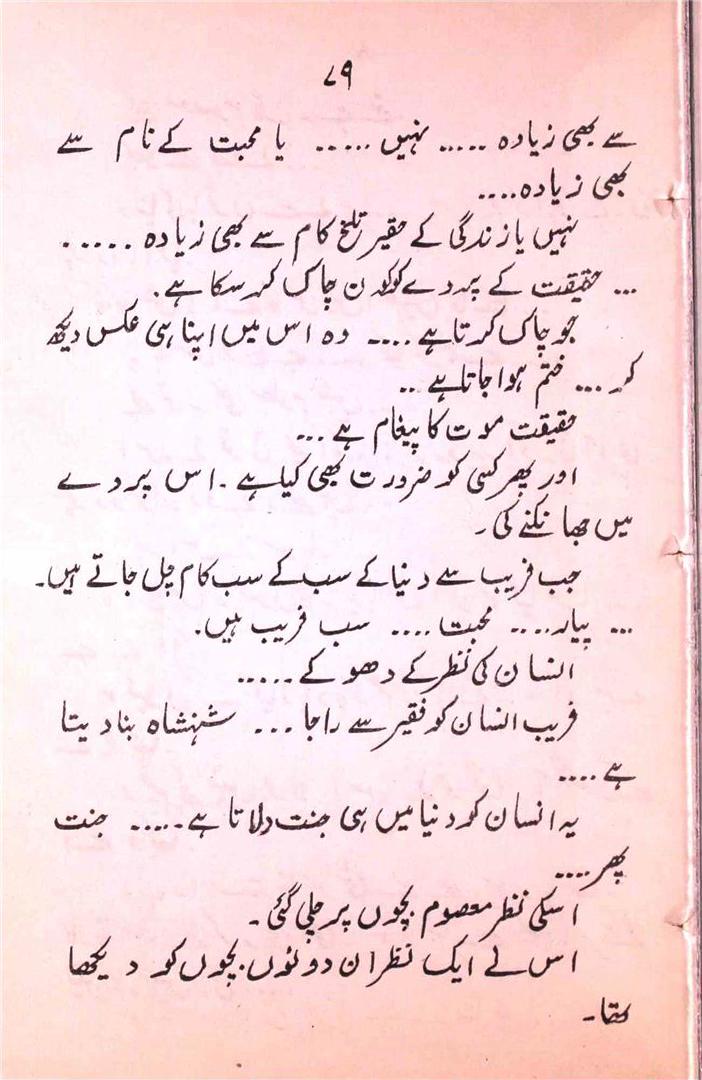 ۷۹
سے بھی زیادہ ..... نہیں ..... یا محبت کے نام سے
بھی زیادہ....
نہیں یا زندگی کے حقیر تلخ کام سے بھی زیادہ .....
... حقیقت کے پردے کو کون چاک کر سکا ہے۔
جو چاک کرتا ہے .... وہ اس میں اپنا ہی عکس دیکھ
کر ... ختم ہوا جاتا ہے ..
حقیقت موت کا پیغام ہے ...
اور پھر کسی کو ضرورت بھی کیا ہے ۔ اس پردے
میں جھانکنے کی ۔
جب فریب سے دنیا کے سب کے سب کام چل جاتے ہیں۔
... پیار..... محبت .... سب فریب ہیں۔
انسان کی نظر کے دھوکے .....
فریب انسان کو فقیر سے راجا ... شہنشاہ بنا دیتا
ہے ....
یہ انسان کو دنیا میں ہی جنت دلاتا ہے ..... جنت
پھر ....
اسکی نظر معصوم بچوں پر چلی گئی ۔
اس نے ایک نظر ان دونوں بچوں کو دیکھا
تھا ۔